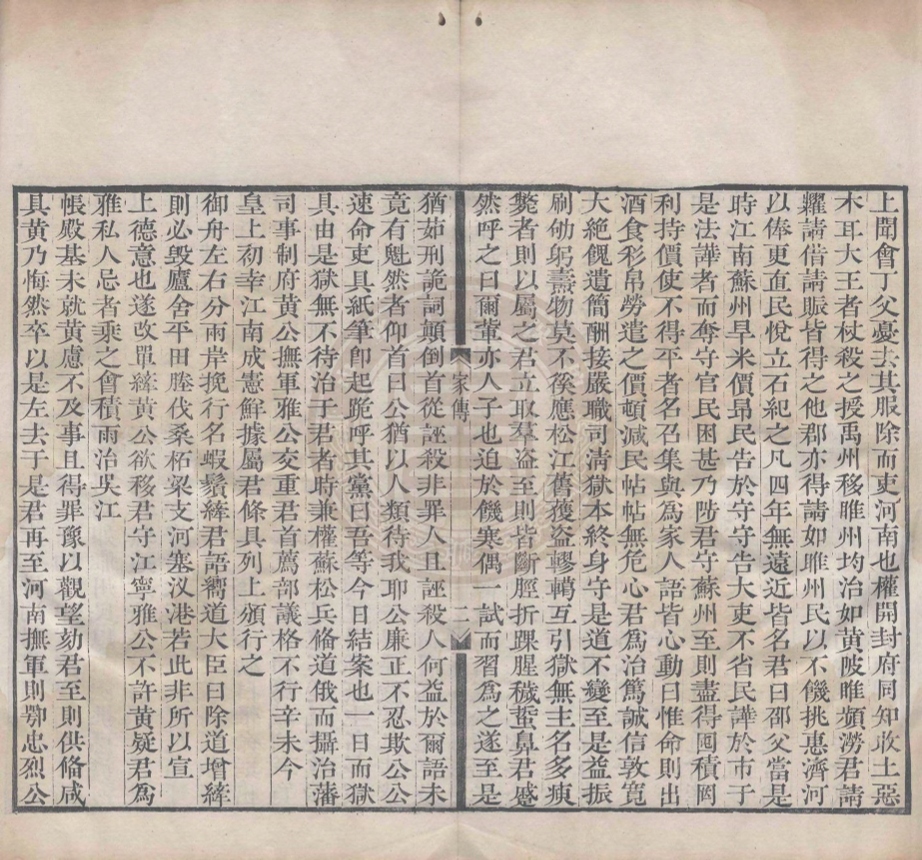 上聞會丁父憂去其服除而吏河南也權開封府同知收土惡
木耳大王者杖殺之授禹州移睢州均治如黃陂睢頻澇君請
糶請借請賑皆得之他郡亦得請如睢州民以不饑挑惠濟河
以俸更直民悅立石紀之凡四年無遠近皆名君曰邵父當是
時江南蘇州旱米價昂民告於守守告大吏不省民譁於市于
是法譁者而奪守官民困甚乃陟君守蘇州至則盡得囤積罔
利持價使不得平者名召集與為家人語皆心動曰惟命則出
酒食彩帛勞遣之價頓減民帖帖無危心君為治篤誠信敦寬
大絕餽遺簡酬接嚴職司清獄本終身守是道不變至是益振
刷劬躬燾物莫不徯應松江舊獲盜轇轕互引獄無主名多瘐
斃者則以屬之君立取羣盜至則皆斷脛折踝腥穢蜇鼻君慼
然呼之曰爾輩亦人子也迫於饑寒偶一試而習為之遂至是
家傳
二
猶茹刑詭詞顛倒首從誣殺非罪人且誣殺人何益於爾語未
竟有魁然者仰首曰公猶以人類待我耶公廉正不忍欺公公
速命吏具紙筆卽起跪呼其黨曰吾等今日結案也一日而獄
具由是獄無不待治于君者時兼權蘇松兵備道俄而攝治藩
司事制府黃公撫軍雅公交重君首薦部議格不行辛未今
皇上初幸江南成憲鮮據屬君條具列上頒行之
御舟左右分兩岸挽行名蝦鬚縴君語嚮道大臣曰除道增縴
則必毀廬舍平田塍伐桑柘梁支河塞汊港若此非所以宣
上德意也遂改單縴黃公欲移君守江寧雅公不許黃疑君為
雅私人忌者乘之會積雨治吳江
帳殿基未就黃慮不及事且得罪豫以觀望劾君至則供備咸
具黃乃悔然卒以是左去于是君再至河南撫軍則鄂忠烈公